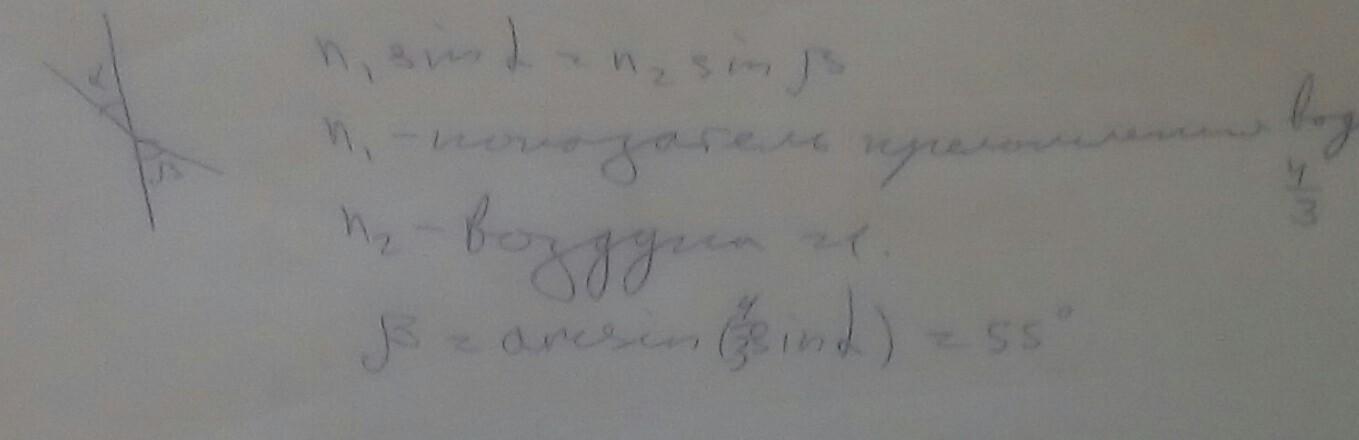 α
β
n₁ sin α = n₂ sin β
n₁ - показатель преломления вод
4/3
n₂ - воздуха
β = arcsin(4/3 sin α) = 55°